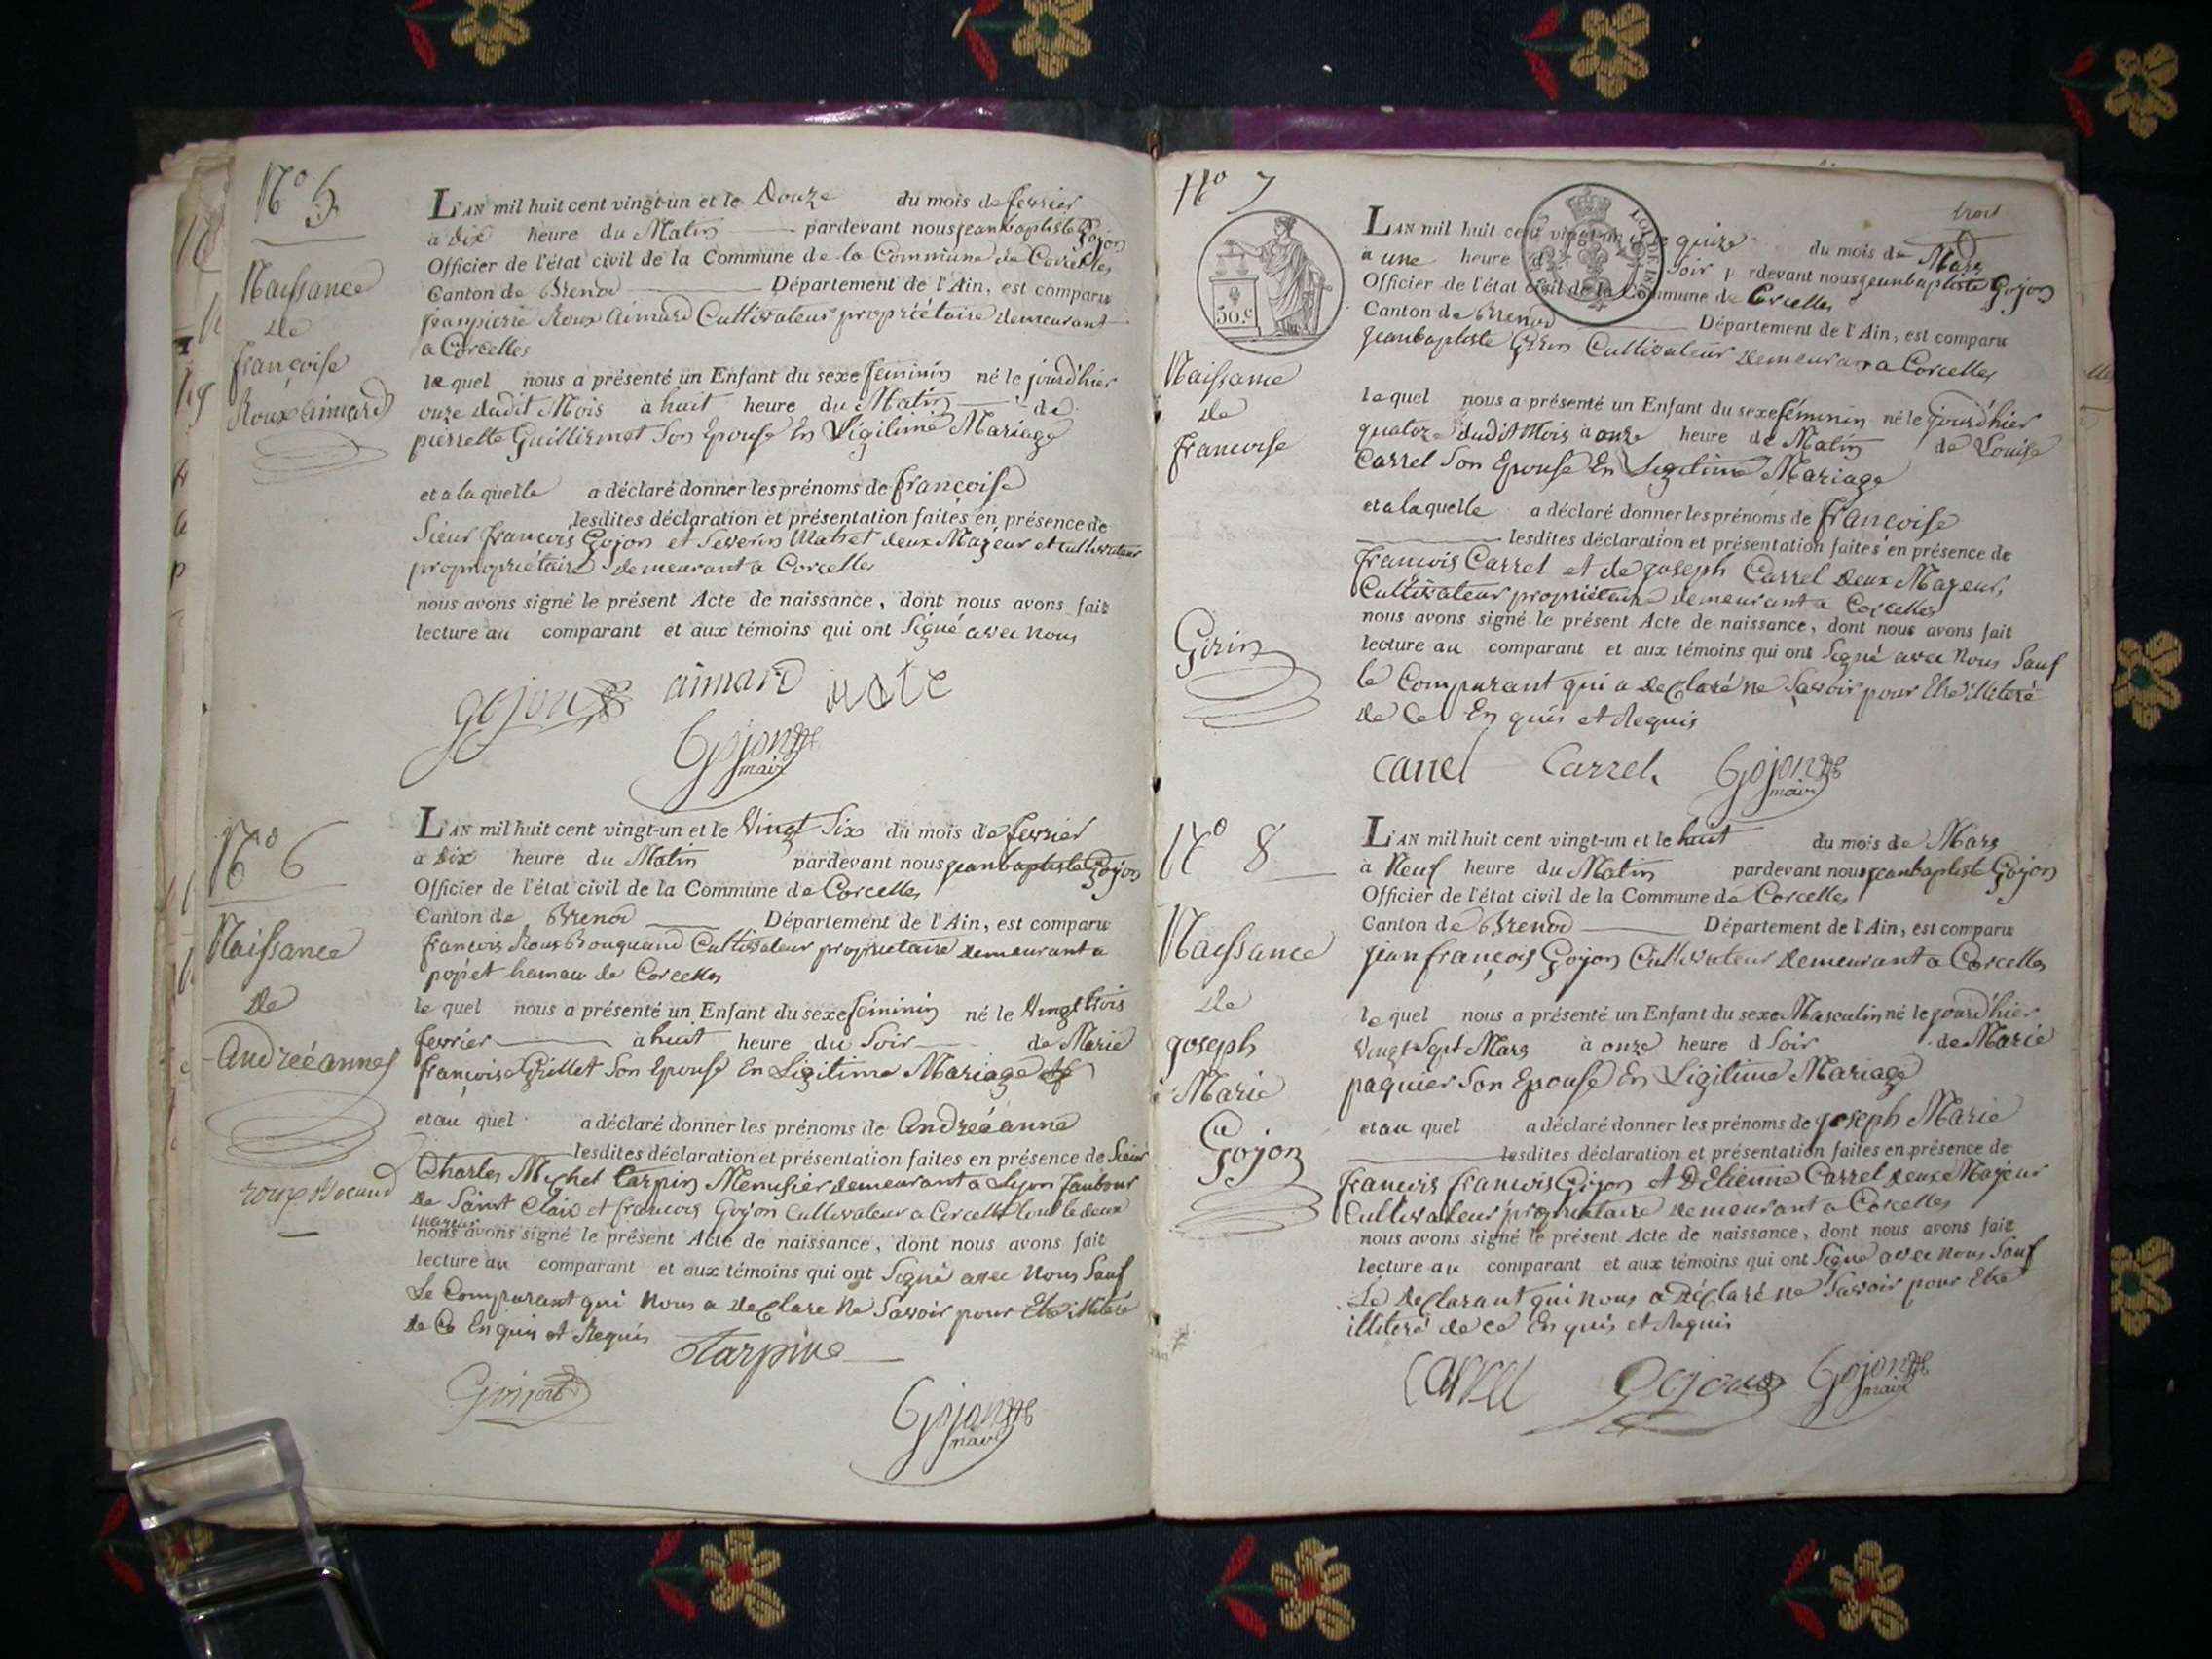 N.o 5
Naissance
de
françoise
Roux aimard
L'AN mil huit cent vingt-un et le Douze du mois de fevrier
à Dix heure du Matin pardevant nous jeanbaptiste Gojon
Officier de l'état civil de la Commune de la Commune de Corcelles
Canton de Brenod Département de l'Ain, est comparu
Roux Aimard Cultivateur propriétaire demeurant
a Corcelles
le quel nous a présenté un Enfant du sexe feminin né le jourdhier
onze dudit Mois à huit heure du Matin de
pierrette Guillermet Son Epouse En Ligitime Mariage
et a la quelle a déclaré donner les prénoms de françoise
lesdites déclaration et présentation faites en présence de
Sieur françois Gojon et Severin deux Majeur et cultivateur
propropriétaire demeurant a Corcelles
nous avons signé le présent Acte de naissance, dont nous avons fait
lecture au comparant et aux témoins qui ont Signé avec nous
gojon aimard
Gojon
maire
N.o 6
Naissance
de
Andréeanne
roux
L'AN mil huit cent vingt-un et le Vingt Six du mois de fevrier
à Dix heure du Matin pardevant nous jeanbaptiste Gojon
Officier de l'état civil de la Commune de Corcelles
Canton de Brenod Département de l'Ain, est comparu
francois Roux Cultivateur propriétaire demeurant a
hameau de Corcelles
le quel nous a présenté un Enfant du sexe féminin né le Vingt trois
fevrier à huit heure du Soir de Marie
françoise Grillet Son Epouse En Ligitime Mariage
et au quel a déclaré donner les prénoms de Andréeanne
lesdites déclaration et présentation faites en présence de Sieur
Charles Michel Tarpin Menusier demeurant a Lyon faubour
de Saint Clair et francois Gojon Cultivateur a Corcelle tout le deux
majeur
nous avons signé le présent Acte de naissance, dont nous avons fait
lecture au comparant et aux témoins qui ont Signé avec nous Sauf
Le Comparant qui nous a declare ne Savoir pour Etre illiteré
de Ce En quis et Requis
Tarpin
Gojon
Gojon
maire
N.o 7
30.c
LOI DE 1816
trois
Naissance
de
francoise
Girin
L'AN mil huit cent vingt-un et le quize du mois de Mars
à une heure d Soir p rdevant nous jeanbaptiste Gojon
Officier de l'état civil de la Commune de Corcelles
Canton de Brenod Département de l'Ain, est comparu
jeanbaptiste Girin Cultivateur demeuran a Corcelles
le quel nous a présenté un Enfant du sexe féminin né le jourdhier
quatorze dudit Mois à onze heure de Matin de Louise
Carrel Son Epouse En Legitime Mariage
et a la quelle a déclaré donner les prénoms de francoise
lesdites déclaration et présentation faites en présence de
francois Carrel et de joseph Carrel deux Majeur,
Cultivateur propriétaire demeurant a Corcelles
nous avons signé le présent Acte de naissance, dont nous avons fait
lecture au comparant et aux témoins qui ont Signé avec nous Sauf
le Comparant qui a declaré ne Savoir pour Etre illiteré
de Ce En quis et Requis
Carrel Carrel Gojon
maire
N.o 8
Naissance
de
joseph
Marie
Gojon
L'AN mil huit cent vingt-un et le huit du mois de Mars
à Neuf heure du Matin pardevant nous jeanbaptiste Gojon
Officier de l'état civil de la Commune de Corcelles
Canton de Brenod Département de l'Ain, est comparu
jean françois Gojon Cultivateur demeurant a Corcelles
le quel nous a présenté un Enfant du sexe Masculin né le jourdhier
Vingt Sept Mars à onze heure d Soir de Marie
paquier Son Epouse En Ligitime Mariage
et au quel a déclaré donner les prénoms de joseph Marie
lesdites déclaration et présentation faites en présence de
francois francois Gojon et D Etienne Carrel deux Majeur
Cultivateur propriétaire demeurant a Corcelles
nous avons signé le présent Acte de naissance, dont nous avons fait
lecture au comparant et aux témoins qui ont Signé avec nous Sauf
Le declarant qui nous a Déclaré ne Savoir pour Etre
illiteré de ce En quis et Requis
Carrel Gojon Gojon
maire